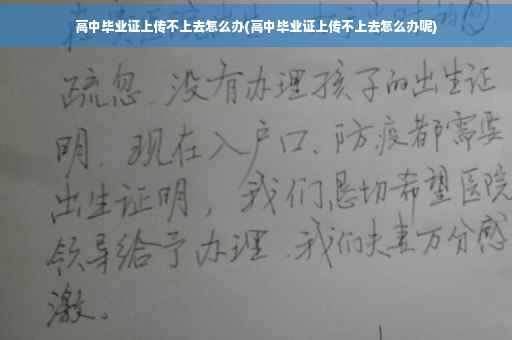 高中毕业证上传不上去怎么办(高中毕业证上传不上去怎么办呢)
疏忽、没有办理孩子的出生证
明、现在入户口、防疫都需要
出生证明，我们恳切希望医院
领导给予办理、我们夫妻万分感
激。